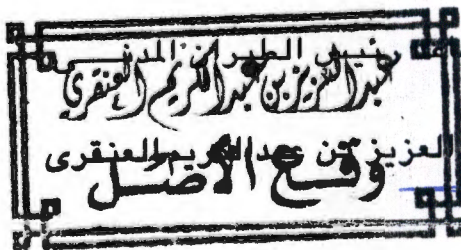 رئيس الطيران المدني
عبدالعزيز بن عبدالكريم العنقري
العزيز بن عبدالكريم العنقرى
وقع الأصل